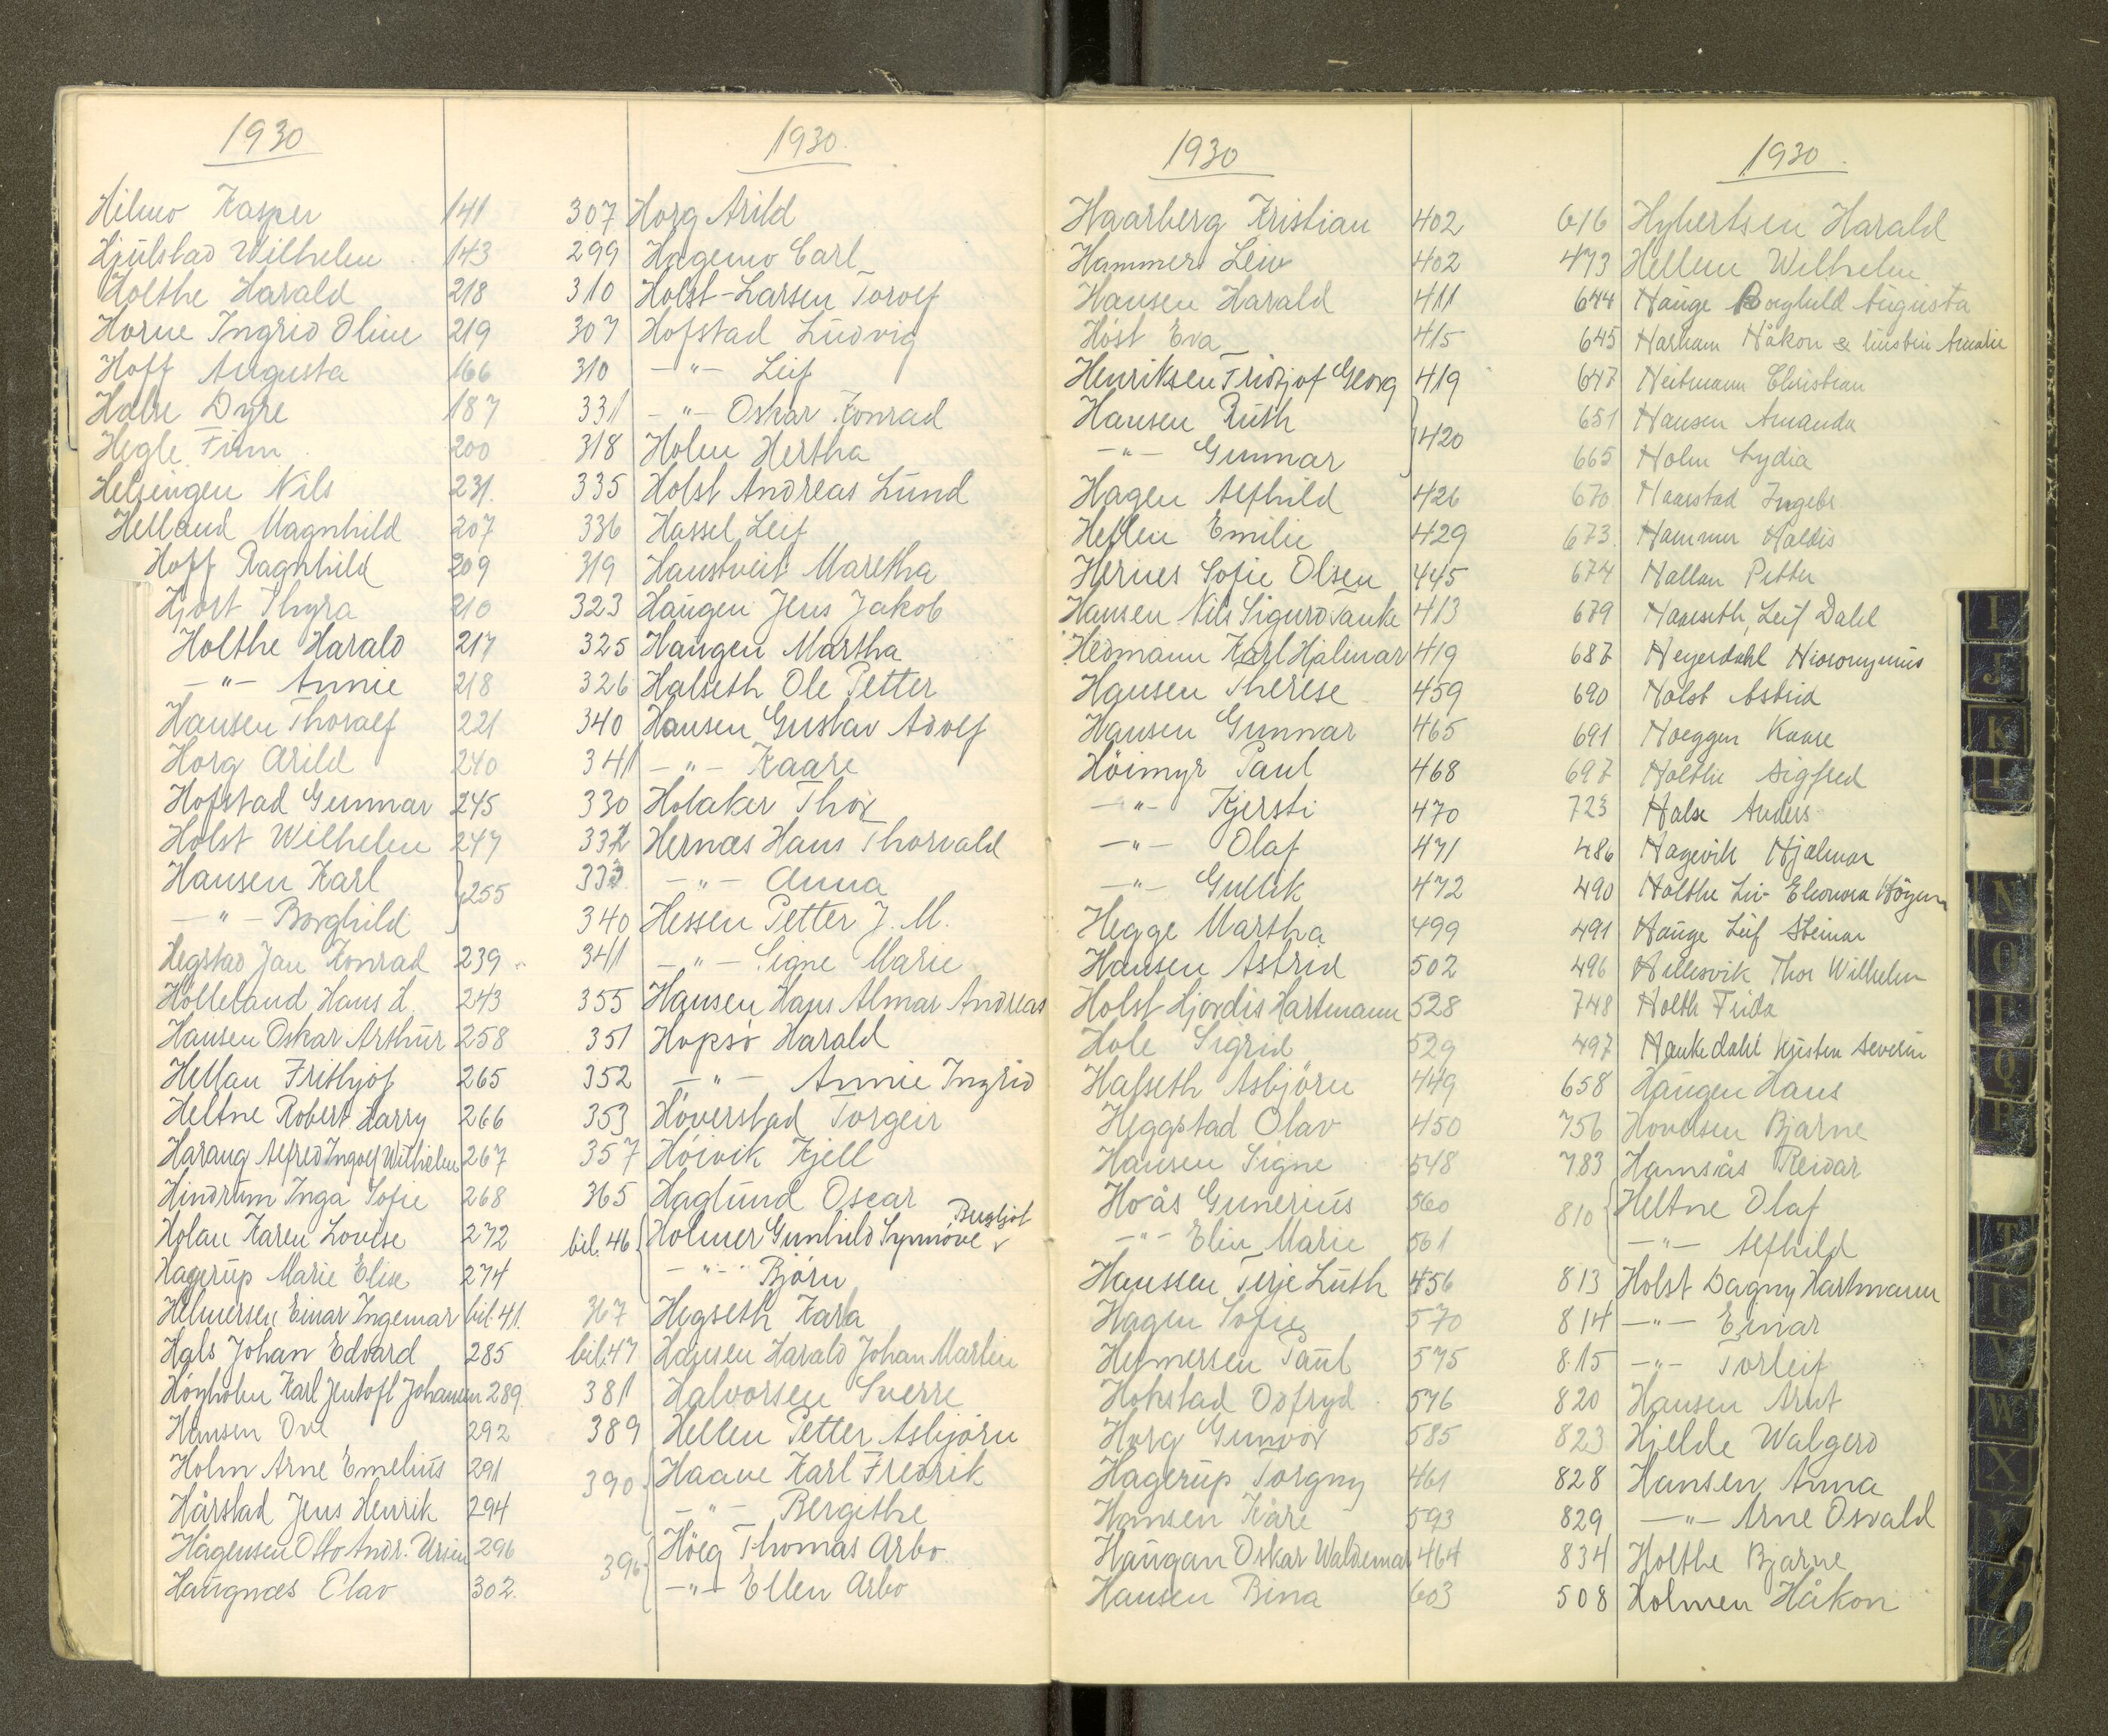 1930
Hilmo Kasper 141
Hjulstad Wilhelm 143
Holthe Harald 218
Horne Ingrid Oline 219
Hoff Augusta 166
Halse Dyre 187
Hegle Finn 200
Helsingen Nils 231.
Helland Magnhild 207
Hoff Ragnhild 209
Hjort Thyra 210
Holthe Harald 217
—"— Annie 218
Hansen Thoralf 221
Horg Arild 240
Hofstad Gunnar 245
Holst Wilhelm 247
Hansen Karl
—"— Borghild } 255
Hegstad Jan Konrad 239
Holleland Hans L. 243
Hansen Oskar Arthur 258
Hellan Frithjof 265
Heltne Robert Harry 266
Harang Alfred Ingolf Wilhelm 267
Hindrum Inga Sofie 268
Holan Karen Lovise 272
Hagerup Marie Elise 274
Helmersen Einar Ingemar bil. 41.
Hals Johan Edvard 285
Höyholm Karl Jentoft Johansen 289.
Hansen Ove 292
Holm Arne Emelius 291
Hårstad Jens Henrik 294
Hågensen Otto Andr. Ursin 296
Haugnæs Olav 302.
1930.
307 Horg Arild
299 Hagemo Carl
310 Holst-Larsen Torolf
307 Hofstad Ludvig
310 —"— Leif
331 —"— Oskar Konrad
318 Holm Hertha
335 Holst Andreas Lund
336 Hassel Leif
319 Haustveit Maretha
323 Haugen Jens Jakob
325 Haugen Martha
326 Halseth Ole Petter
340 Hansen Gustav Adolf
341 —"— Kaare
330 Holaker Thor
332 Hernæs Hans Thorvald
333. —"— Anna
340 Hessen Petter J. M.
341 —"— Signe Marie
355 Hansen Hans Almar Andreas
351 Hopsö Harald
352 —"— Annie Ingrid
353 Höverstad Torgeir
357 Höivik Kjell
365 Haglund Oscar
Bergljot
bil. 46 { Holmer Gunhild Synnöve v
—"— Björn
367 Hegseth Karla
bil. 47 Hansen Harald Johan Martin
381 Halvorsen Sverre
389 Hellen Petter Asbjörn
390 { Haave Karl Fredrik
—"— Bergithe
396 { Höeg Thomas Arbo
—"— Ellen Arbo
1930
Haarberg Kristian 402
Hammer Leiv 402
Hansen Harald 411
Höst Eva 415
Henriksen Fridtjof Georg 419
Hansen Ruth
—"— Gunnar } 420
Hagen Alfhild 426
Hellen Emilie 429
Hernes Sofie Olsen 445
Hansen Nils Sigurd Tanke 413
Hedmann Karl Hjalmar 419
Hansen Therese 459
Hansen Gunnar 465
Höimyr Paul 468
—"— Kjersti 470
—"— Olaf 471
—"— Gullik 472
Hegge Martha 499
Hansen Astrid 502
Holst Hjördis Hartmann 528
Hole Sigrid 529
Halseth Asbjörn 449
Heggstad Olav 450
Hansen Signe 548
Hoås Gunerius 560
—"— Elin Marie 561
Hanssen Terje Luth 456
Hagen Sofie 570
Helmersen Paul 575
Hokstad Osfryd 576
Horg Gunvor 585
Hagerup Torgny 461
Hansen Kåre 593
Haugan Oskar Waldemar 464
Hansen Bina 603
1930.
616 Hybertsen Harald
473 Hellem Wilhelm
644 Hauge Borghild Augusta
645 Harham Håkon & Amalie
647 Heitmann Christian
651 Hansen Amanda
665 Holm Lydia
670 Haarstad Ingebr
673. Hammer Haldis
674 Hallan Petter
679 Haarseth, Leif Dahl
687 Heyerdahl Hieronymus
690 Holst Astrid
691 Hoeggen Kaare
697 Holthe Sigfred
723 Halse Anders
486 Hagevik Hjalmar
490 Holthe Liv Eleonora Höyem
491 Hauge Leif Steinar
496 Hellesvik Thor Wilhelm
748 Holth Frida
497 Haukedahl Kristen Severin
658 Haugen Hans
756 Hovdsen Bjarne
783 Hamsås Reidar
810 { Heltne Olaf
—"— Alfhild
813 Holst Dagny Hartmann
814 —"— Einar
815 —"— Torleif
820 Hansen Arnt
823 Hjelde Walgerd
828 Hansen Anna
829 —"— Arne Osvald
834 Holthe Bjarne
508 Holmen Håkon
I
J
K
L
N
O
P
Q
R
T
U
V
W
X
Y
Z